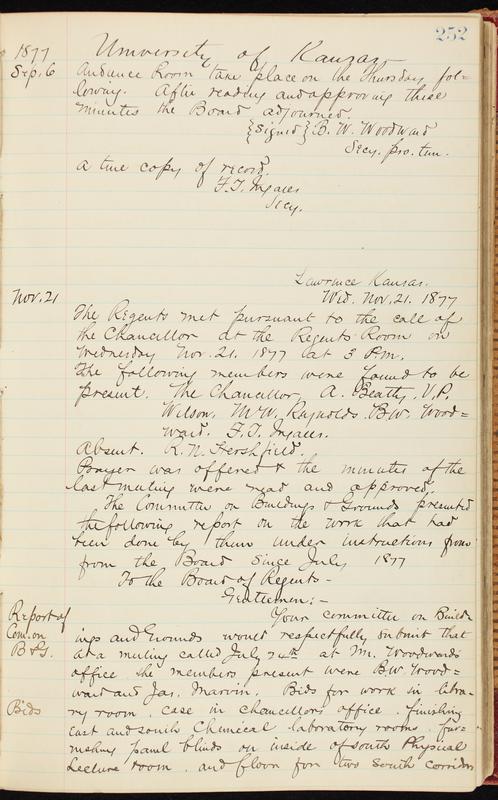 252
1877 University of Kansas
Sep. 6 Audience Room take place on the Thursday fol=
lowing. After reading and approving these
minutes the Board adjourned.
{Signed} B. W. Woodward
Secy. pro. tem.
a true copy of record.
F. T. Ingalls
Secy.
Lawrence Kansas.
Nov. 21 Wed. Nov. 21. 1877
The Regents met pursuant to the call of
the Chancellor at the Regents Room on
Wednesday Nov. 21. 1877 at 3 P.m.
The following members were found to be
present. The Chancellor, A. Beatty, V.P.
Wilson, M.W. Reynolds. B.W. Wood=
ward. F. T. Ingalls.
Absent. R. N. Hershfield.
Prayer was offered & the minutes of the
last meeting were read and approved.
The Committee on Buildings & Grounds presented
the following report on the work that had
been done by them under instructions from
from the Board since July 1877
To the Board of Regents -
Gentlemen: -
Report of Your committee on Build=
Com. on ings and Grounds would respectfully submit that
B & G. at a meeting called July 24th at Mr. Woodwards
office the members present were B.W. Wood=
ward and Jas. Marvin. Bids for work in libra=
Bids ry room, case in chancellors office, finishing
east and south Chemical laboratory rooms, fur=
nishing panel blinds on inside of south Physical
Lecture room, and floor for two south corridors